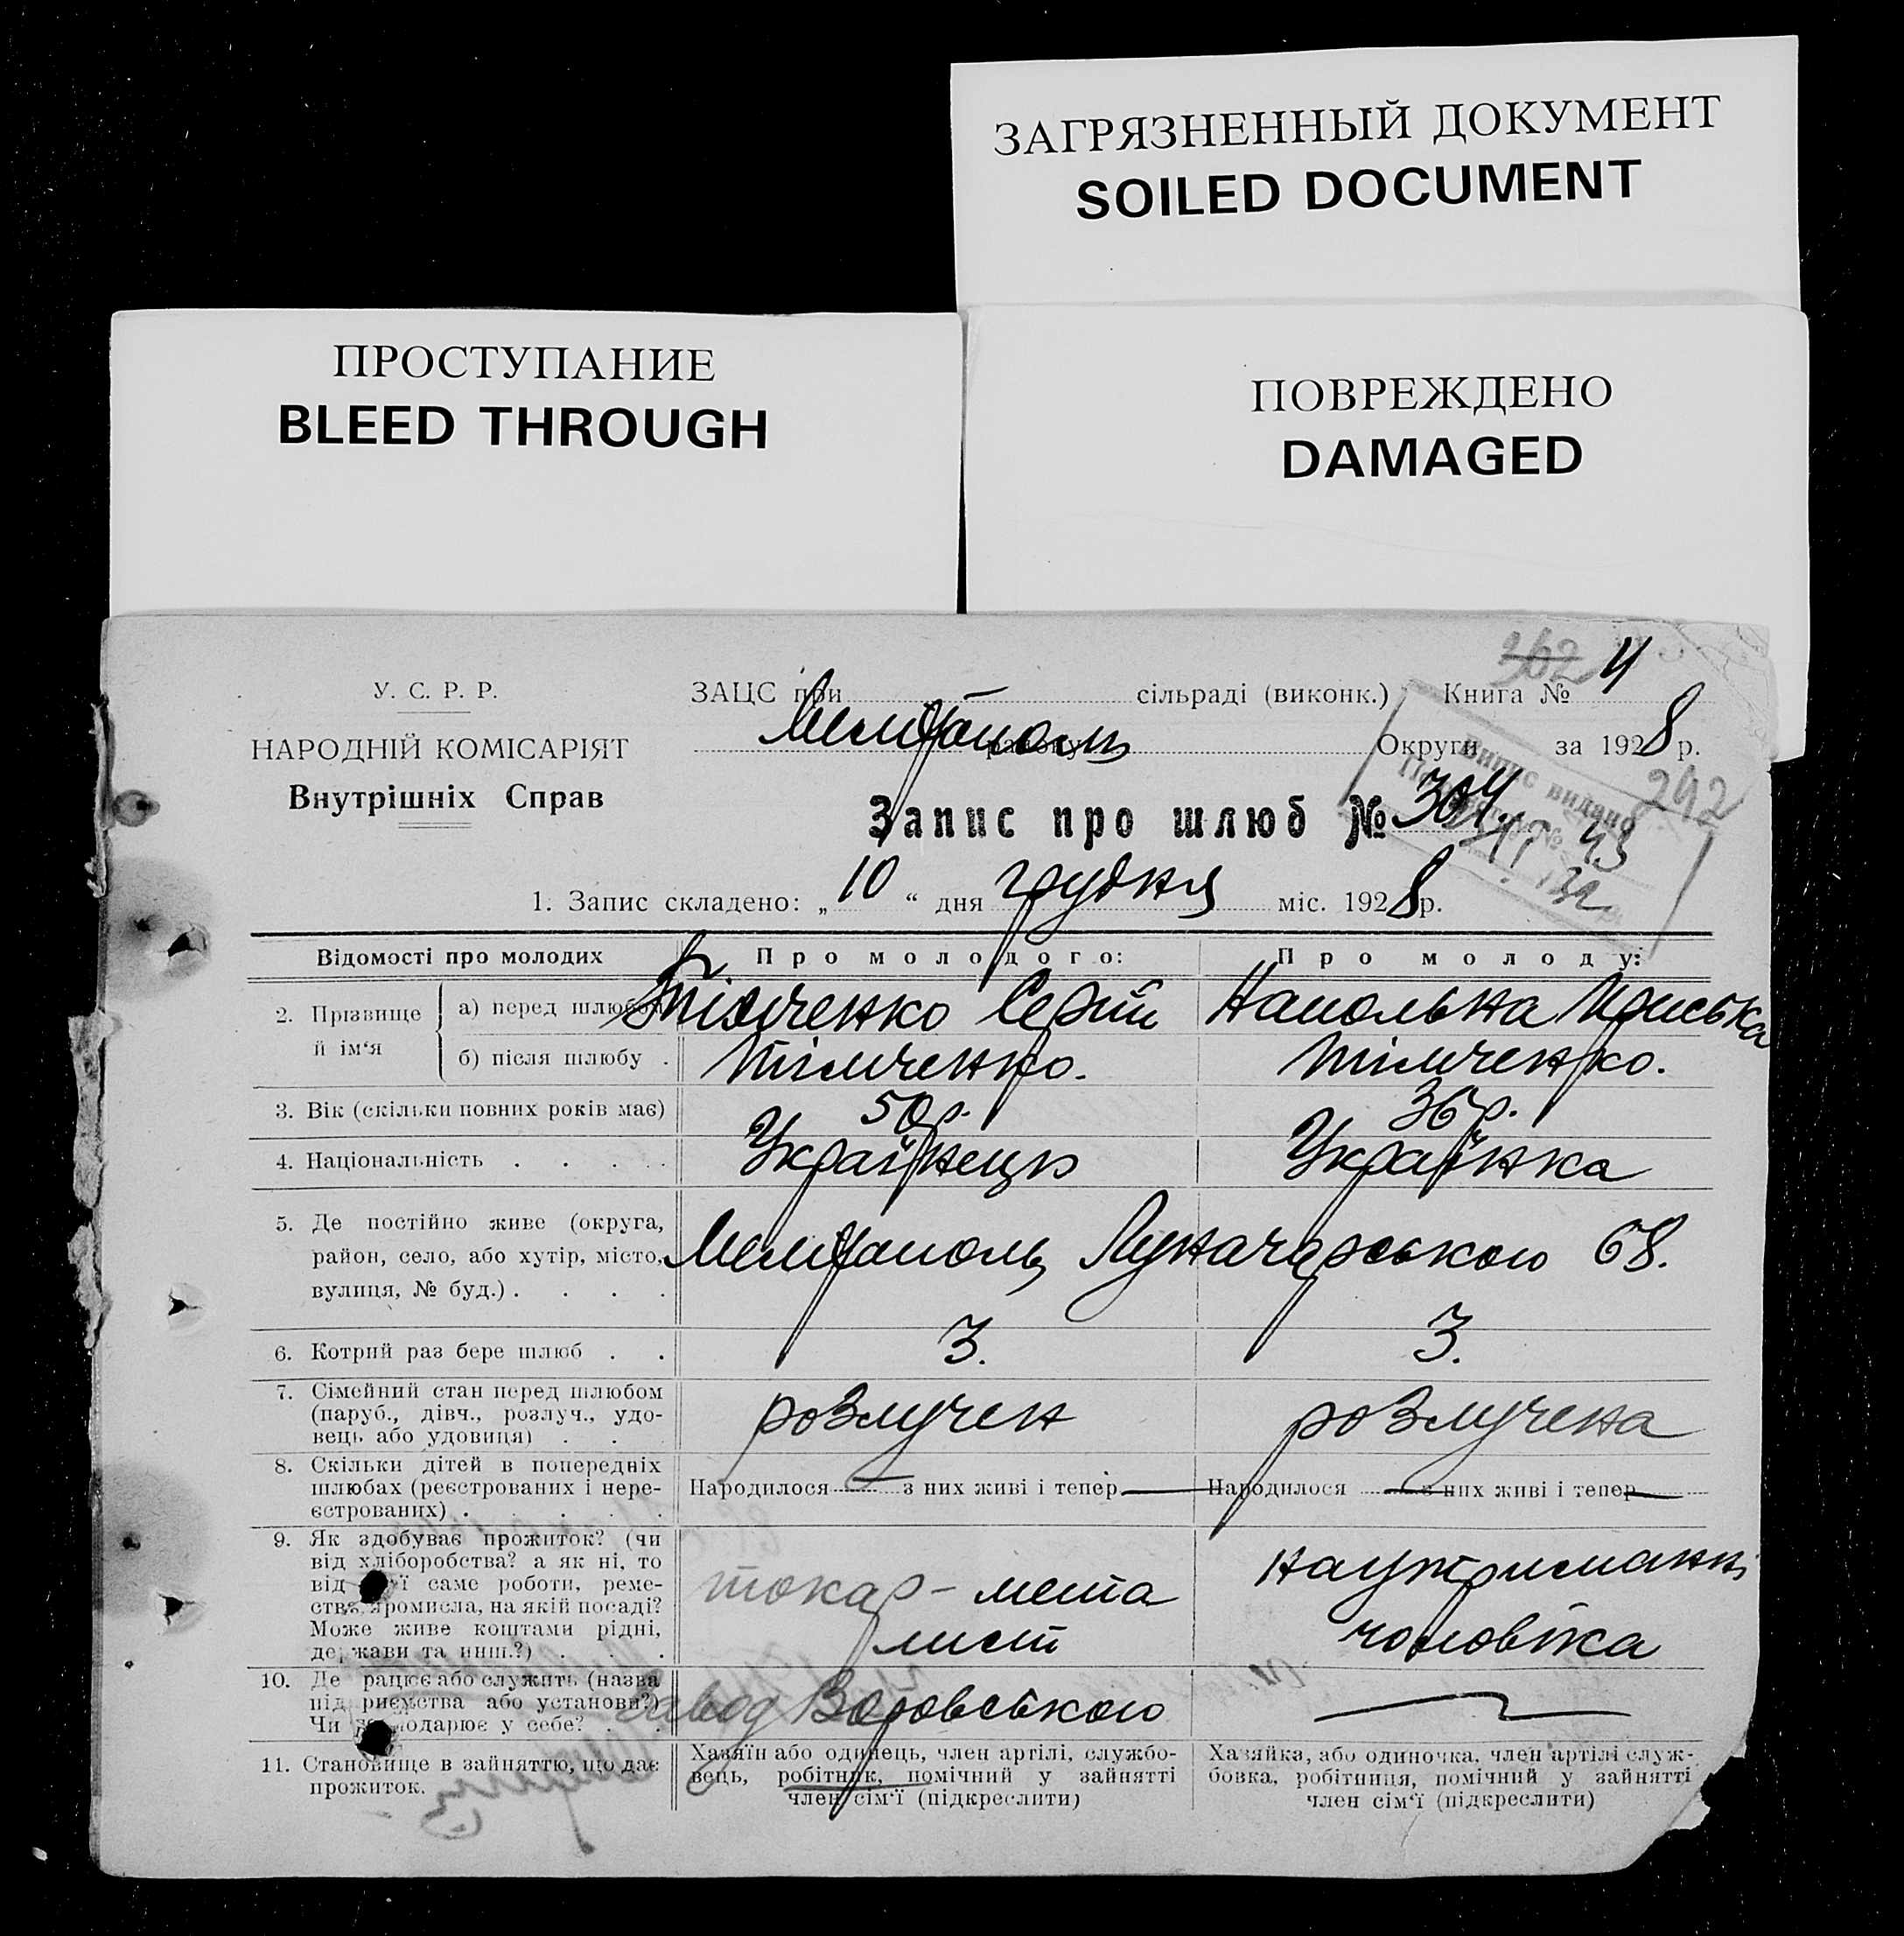 ЗАГРЯЗНЕННЫЙ ДОКУМЕНТ
SOILED DOCUMENT
ПРОСТУПАНИЕ
BLEED THROUGH
ПОВРЕЖДЕНО
DAMAGED
362 4
У. С. Р. Р.
ЗАЦС при сільраді (виконк.) Книга №
НАРОДНІЙ КОМІСАРІЯТ
Мелітополь району Округи за 1928 р.
Внутрішніх Справ
Випис видано
242
Запис про шлюб № 304.
1. Запис складено: „ 10 “ дня грудня міс. 1928 р.
Відомості про молодих
Про молодого:
Про молоду:
2. Прізвище й ім‘я
а) перед шлюбом
Тімченко Сергій
Напольна Приська
б) після шлюбу .
Тімченко.
Тімченко.
3. Вік (скільки повних років має)
50 р.
36 р.
4. Національність . . . .
Українець
Українка
5. Де постійно живе (округа,
район, село, або хутір, місто,
вулиця, № буд.) . . . .
Мелітополь Луначарського 68.
6. Котрий раз бере шлюб . .
3.
3.
7. Сімейний стан перед шлюбом
(паруб., дівч., розлуч., удо-
вець або удовиця) . .
розлучен
розлучена
8. Скільки дітей в попередніх
шлюбах (реєстрованих і нере-
єстрованих) . . . . .
Народилося — з них живі і тепер —
Народилося — з них живі і тепер —
9. Як здобуває прожиток? (чи
від хліборобства? а як ні, то
від ї саме роботи, реме-
ства, промисла, на якій посаді?
Може живе коштами рідні,
держави та инш.?) . . .
токар - мета
лист
на утриманні
чоловіка
10. Де рацює або служить (назва
підприємства або установи?)
Чи подарює у себе? . .
завод Воровського
—
11. Становище в зайняттю, що дає
прожиток.
Хазяїн або одинець, член артілі, службо-
вець, робітник, помічний у зайнятті
член сім‘ї (підкреслити)
Хазяйка, або одиночка, член артілі служ-
бовка, робітниця, помічний у зайнятті
член сім‘ї (підкреслити)